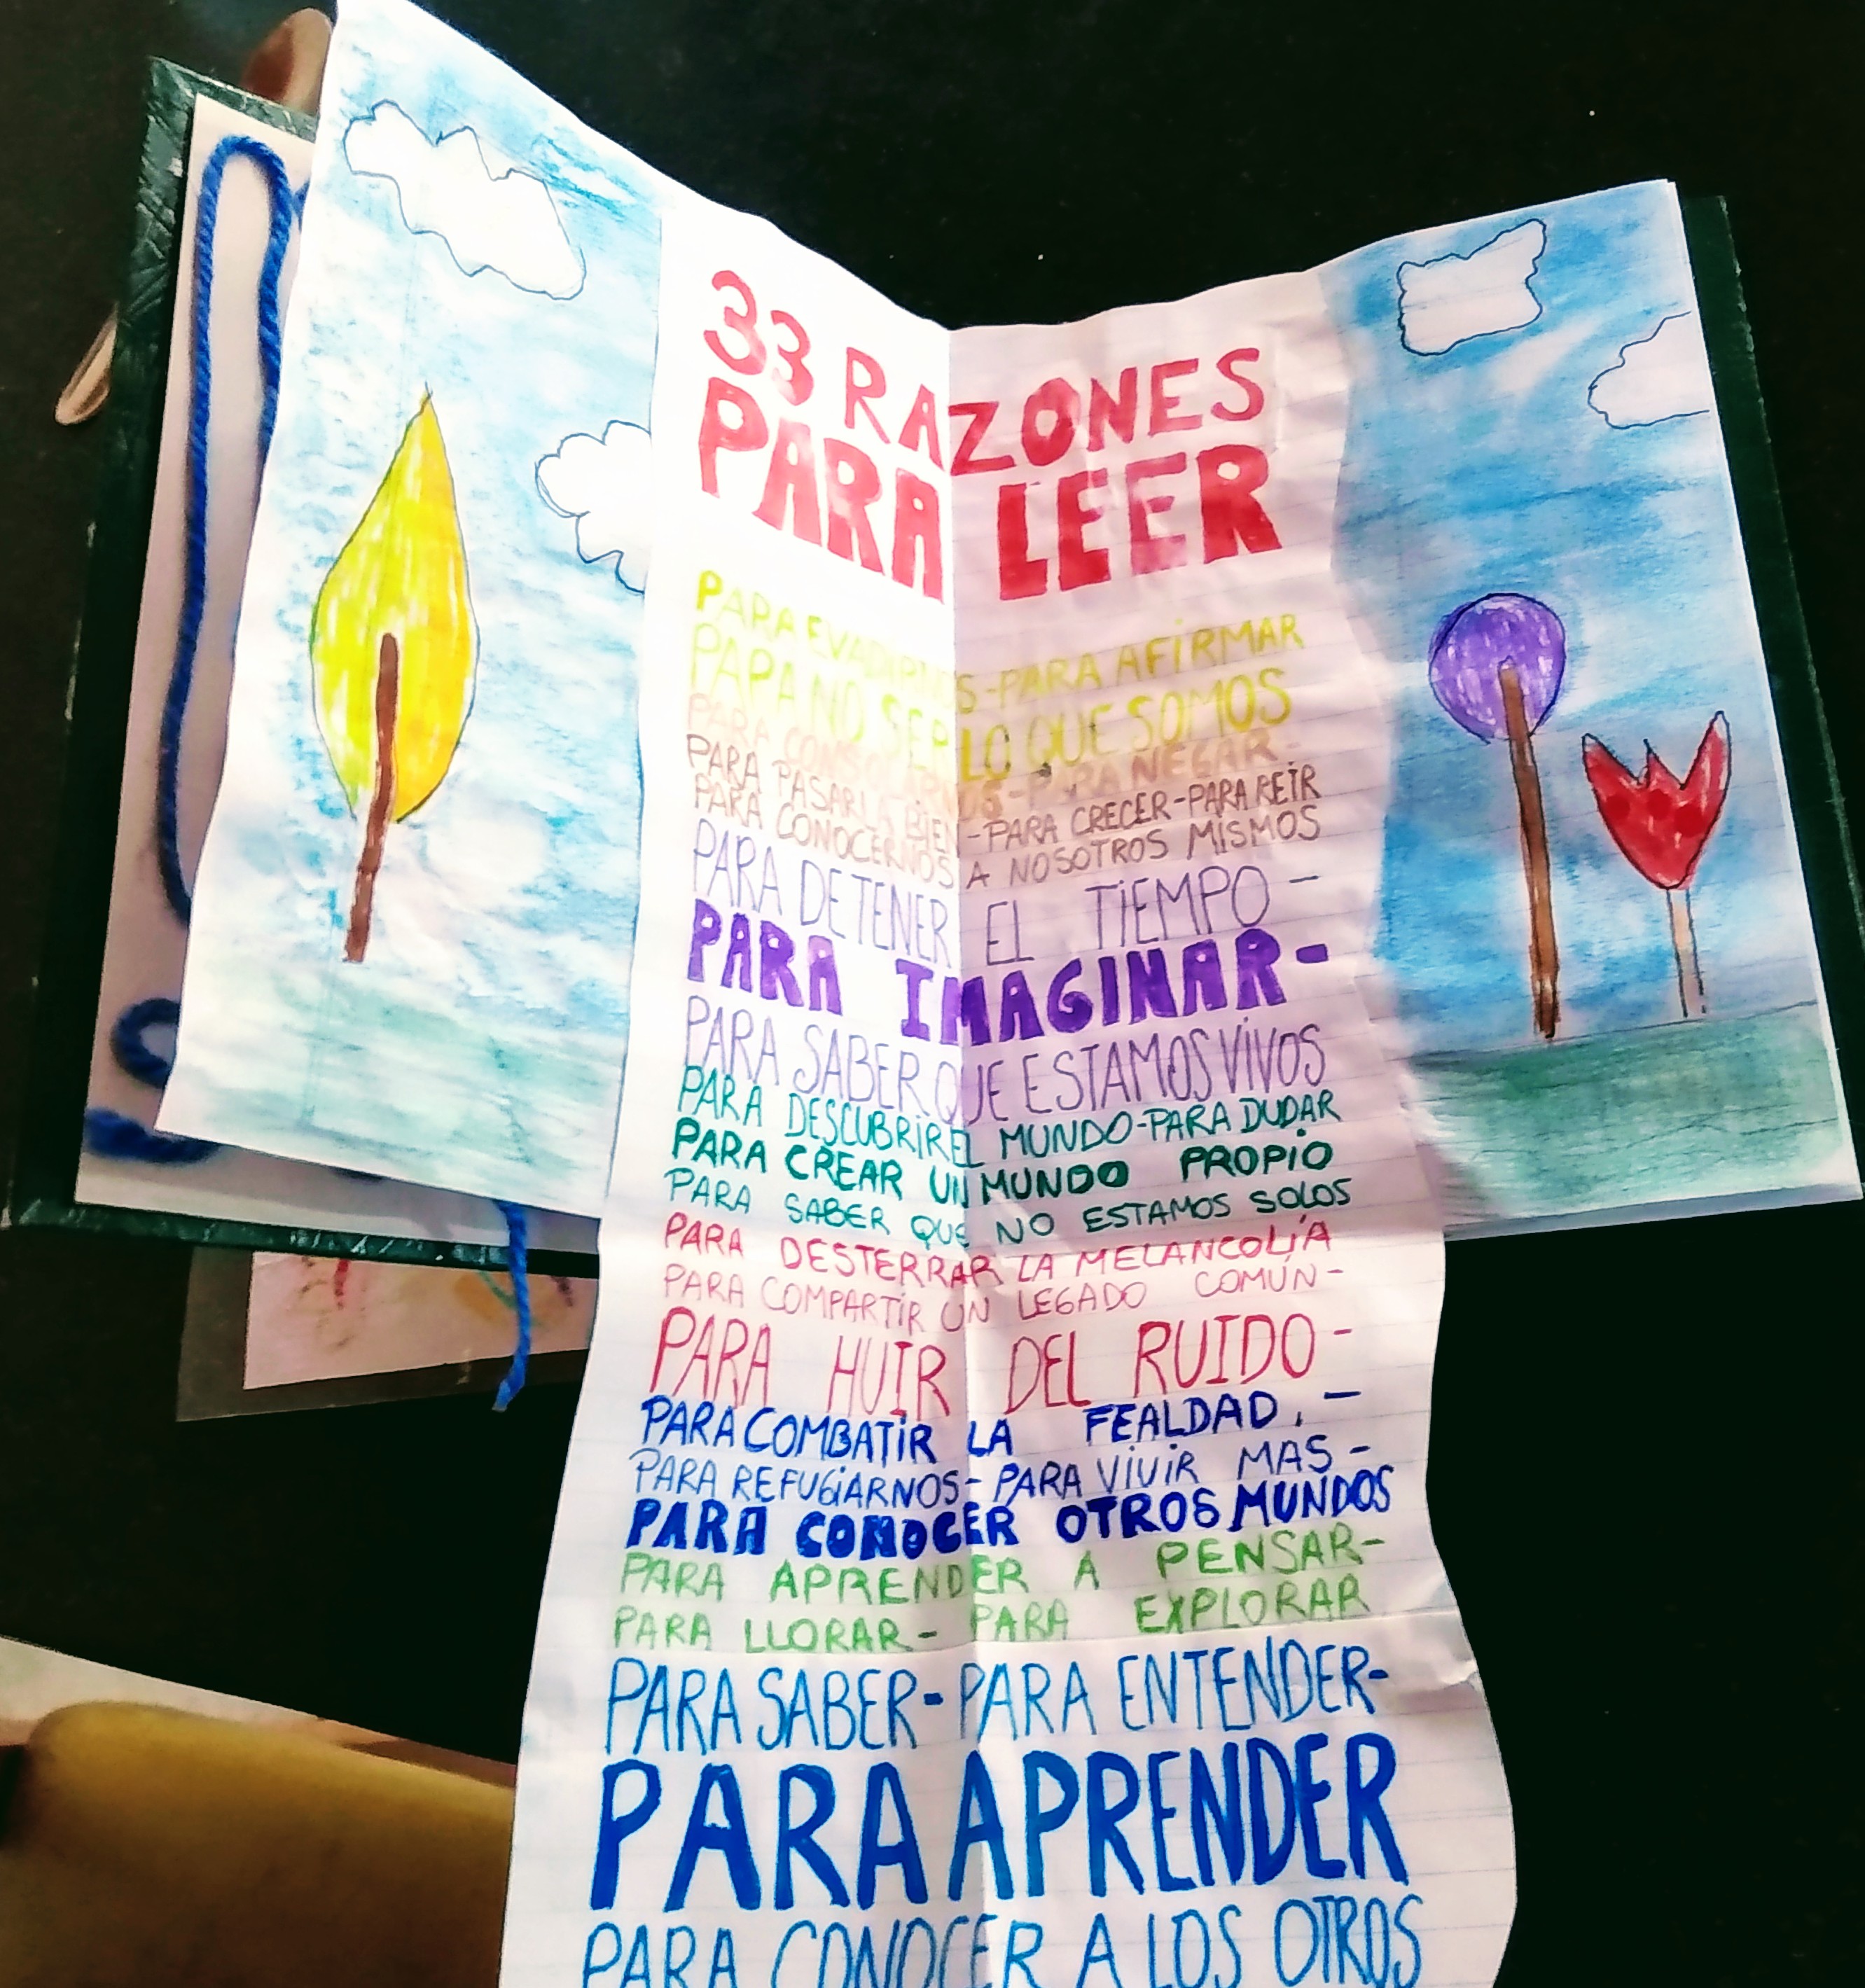 33 RAZONES
PARA LEER
PARA EVADIRNOS-PARA AFIRMAR
PARA NO SER LO QUE SOMOS
PARA CONSOLARNOS-PARA NEGAR-
PARA PASARLA BIEN-PARA CRECER-PARA REÍR
PARA CONOCERNOS A NOSOTROS MISMOS
PARA DETENER EL TIEMPO-
PARA IMAGINAR-
PARA SABER QUE ESTAMOS VIVOS
PARA DESCUBRIR EL MUNDO-PARA DUDAR
PARA CREAR UN MUNDO PROPIO
PARA SABER QUE NO ESTAMOS SOLOS
PARA DESTERRAR LA MELANCOLÍA
PARA COMPARTIR UN LEGADO COMÚN-
PARA HUIR DEL RUIDO-
PARA COMBATIR LA FEALDAD.-
PARA REFUGIARNOS-PARA VIVIR MAS-
PARA CONOCER OTROS MUNDOS
PARA APRENDER A PENSAR-
PARA LLORAR-PARA EXPLORAR
PARA SABER-PARA ENTENDER-
PARA APRENDER
PARA CONOCER A LOS OTROS